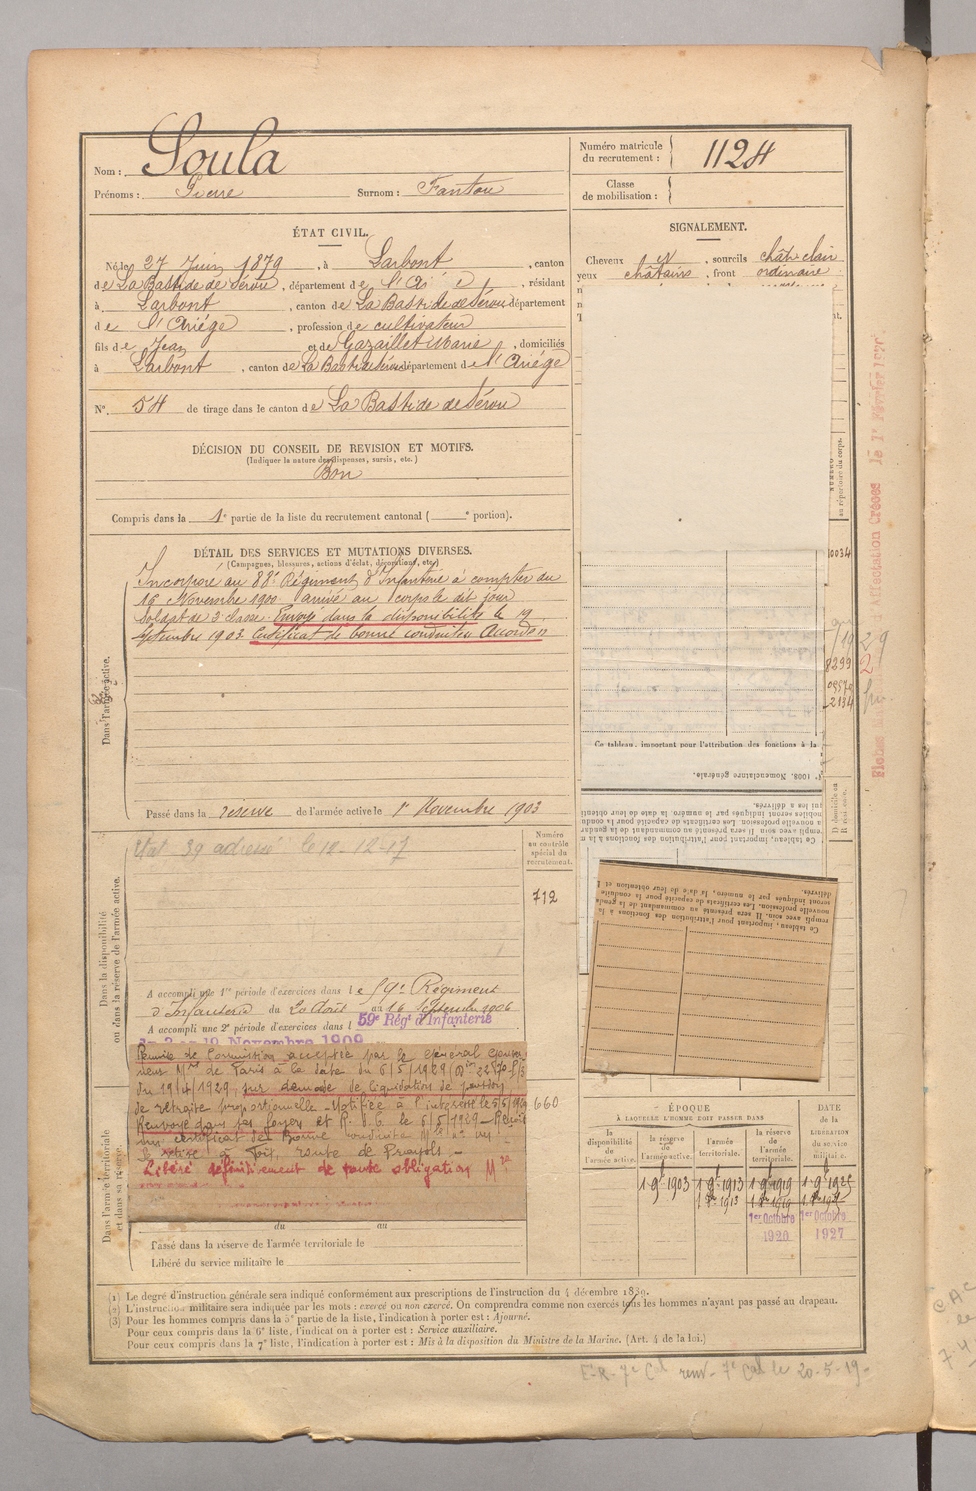 Nom : Soula
Prénoms : Pierre Surnom : Fantou
Numéro matricule du recrutement : 1124
Classe de mobilisation :
ÉTAT CIVIL.
Né le 27 Juin 1879, à Larbont, canton
de La Bastide de Sérou, département de l'Ariège, résidant
à Larbont, canton de La Bastide de Sérou département
de l'Ariége, profession de cultivateur
fils de Jean et de Gazaillet Marie, domiciliés
à Larbont, canton de La Bastide de Sérou département de l'Ariége
N° 54 de tirage dans le canton de La Bastide de Sérou
DÉCISION DU CONSEIL DE REVISION ET MOTIFS.
(Indiquer la nature des dispenses, sursis, etc.)
Bon
Compris dans la 1e partie de la liste du recrutement cantonal ( e portion).
SIGNALEMENT.
Cheveux , sourcils chât. clair
yeux châtains, front ordinaire
DÉTAIL DES SERVICES ET MUTATIONS DIVERSES.
(Campagnes, blessures, actions d'éclat, décorations, etc.)
Incorporé au 88e Régiment d'Infanterie à compter du
16 Novembre 1900 arrivé au corps le dit jour
Soldat de 2e classe. Envoyé dans la disponibilité le 19
Septembre 1903. Certificat de bonne conduite Accordé
Dans l'armée active.
Passé dans la réserve de l'armée active le 1er Novembre 1903
Dans la disponibilité
ou dans la réserve de l'armée active.
Etat 39 adressé le 12-12-17
Numéro
au contrôle
spécial du
recrutement.
712
A accompli une 1re période d'exercices dans le 59e Régiment
d'Infanterie du 20 Août au 16 Septembre 1906
A accompli une 2e période d'exercices dans l 59e Régt d'Infanterie
Novembre 1909
Remise de Commission acceptée par le Général Gouver
neur Mre de Paris à la date du 6/5/1929
du 19/4/1929, sur demande de liquidation de pension
de retraite proportionnelle. Notifiée à l'intéressé le 5/5/1929
Renvoyé dans ses foyers
un certificat de Bonne Conduite
Se retire à Foix, route de
Libéré définitivement de toute obligation Mre
660
Dans l'armée territoriale
et dans sa réserve.
du au
Passé dans la réserve de l'armée territoriale le
Libéré du service militaire le
NUMÉRO
au répertoire du corps.
10034
8299
2134
Fiches
d'Affectation Créées le 1er Février
D domicile ou
R résidence.
Ce tableau, important pour l'attribution des fonctions à la
1008. Nomenclature générale.
Ce tableau, important pour l'attribution des fonctions à la
rempli avec soin. Il sera présenté au commandant de la gendar
nouvelle profession. Les certificats de capacité pour la conduite
seront indiqués par le numéro, la date de leur obtention et l
délivrés.
ÉPOQUE
À LAQUELLE L'HOMME DOIT PASSER DANS
la disponibilité de l'armée active.
la réserve de l'armée active.
l'armée territoriale.
la réserve de l'armée territoriale.
DATE de la LIBÉRATION du service militaire.
1 9bre 1903 1 9bre 1913 1 9bre 1919 1 9bre 1925
1er Octobre 1920 1er Octobre 1927
(1) Le degré d'instruction générale sera indiqué conformément aux prescriptions de l'instruction du 4 décembre 1889.
(2) L'instruction militaire sera indiquée par les mots : exercé ou non exercé. On comprendra comme non exercés tous les hommes n'ayant pas passé au drapeau.
(3) Pour les hommes compris dans la 5e partie de la liste, l'indication à porter est : Ajourné.
Pour ceux compris dans la 6e liste, l'indication à porter est : Service auxiliaire.
Pour ceux compris dans la 7e liste, l'indication à porter est : Mis à la disposition du Ministre de la Marine. (Art. 4 de la loi.)
E-R- 7e Cal renv- 7e Cal le 20-5-19-